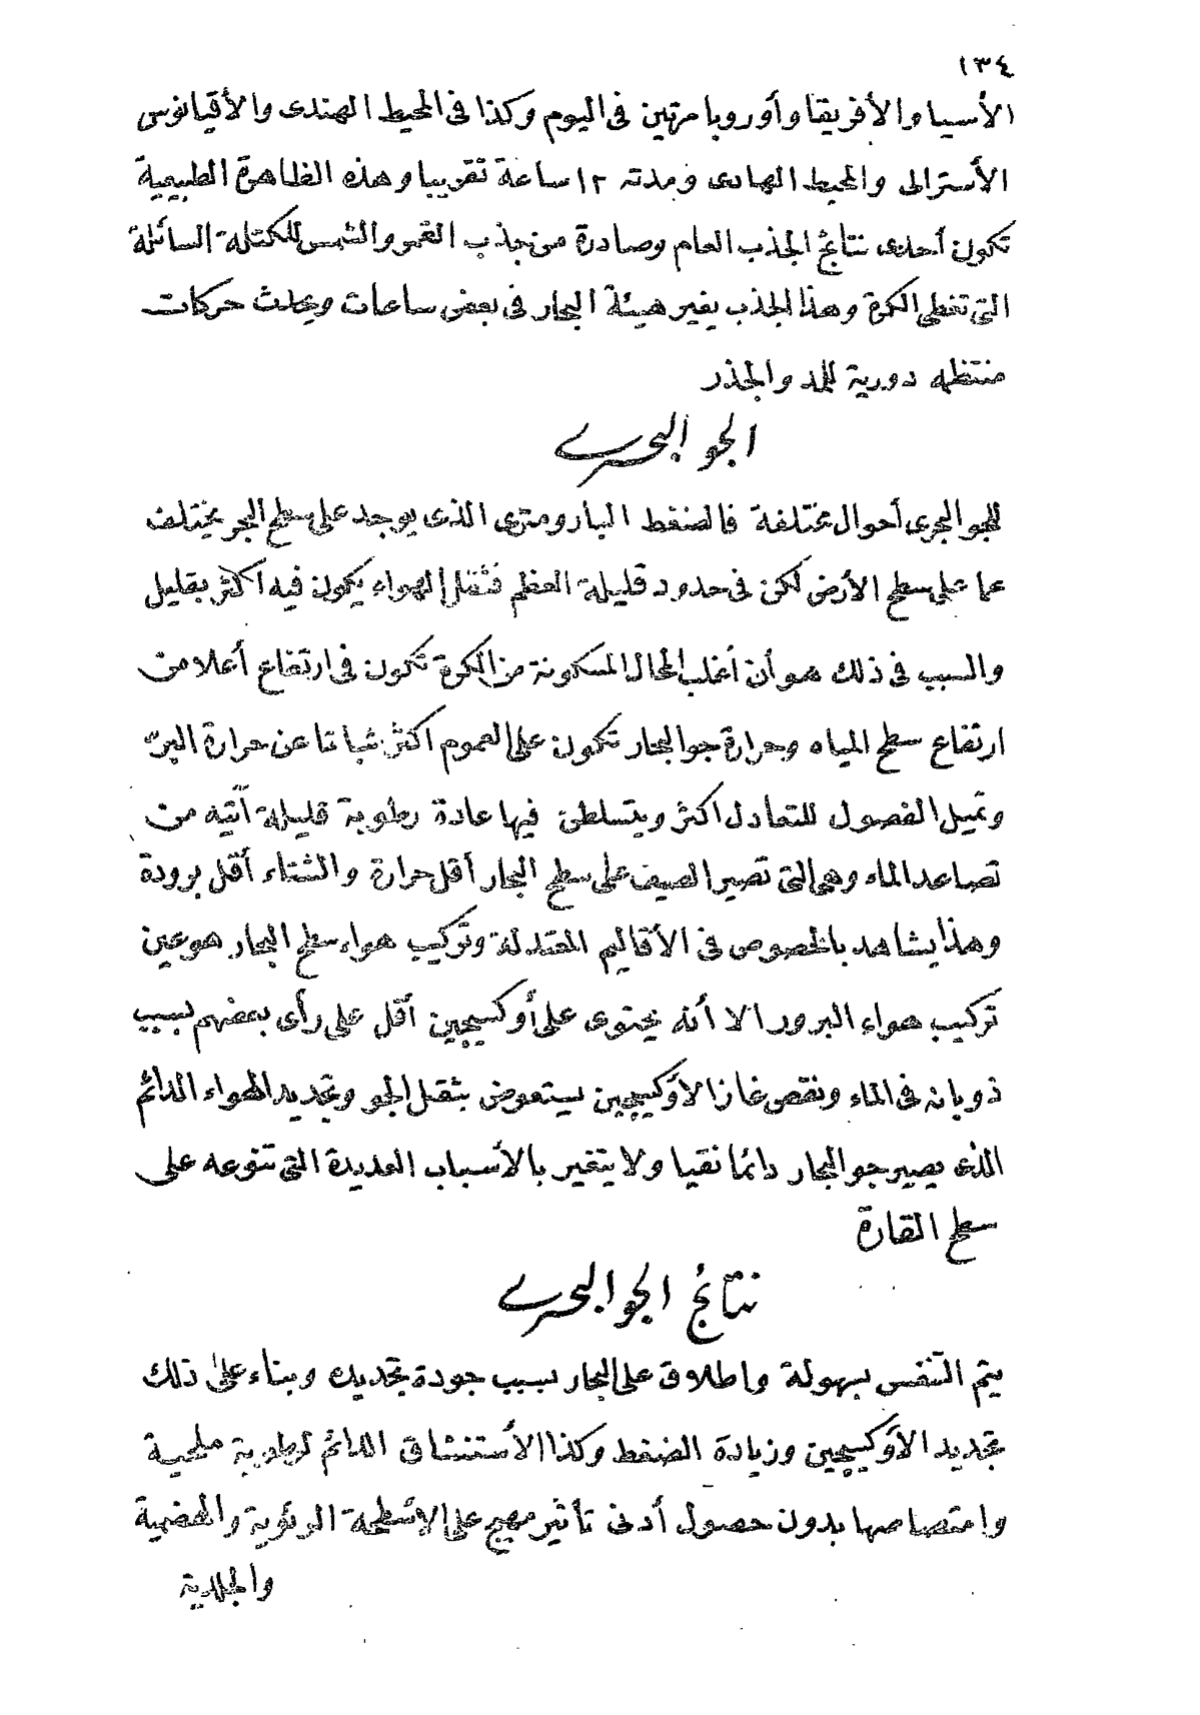 ١٣٤
الأسيا والأفريقا وأوروبا مرتين فى اليوم وكذا فى المحيط الهندى والأقيانوس
الأسترالى والمحيط الهادى ومدته ١٢ ساعة تقريبا وهذه الظاهرة الطبيعية
تكون أحدى نتائج الجذب العام وصادرة من جذب القمر والشمس للكتلة السائلة
التى تغطى الكرة وهذا الجذب يغير هيئة البحار فى بعض ساعات ويحدث حركات
منتظمه دورية للمد والجذر
الجو البحرى
للجو البحرى أحوال مختلفة فالضغط البارومترى الذى يوجد على سطح البحر يختلف
عما على سطح الأرض لكن فى حدود قليلة العظم فثقل الهواء يكون فيه اكثر بقليل
والسبب فى ذلك هو أن أغلب المحال المسكونة من الكرة تكون فى ارتفاع أعلا من
ارتفاع سطح المياه وحرارة جو البحار تكون على العموم اكثر ثباتا عن حرارة البرّ
وتميل الفصول للتعادل اكثر ويتسلطن فيها عادة رطوبة قليلة آتيه من
تصاعد الماء وهى التى تصير الصيف على سطح البحار أقل حرارة والشتاء أقل برودة
وهذا يشاهد بالخصوص فى الأقاليم المعتدلة وتركيب هواء سطح البحار هو عين
تركيب هواء البرور الا أنه يحتوى على أوكسيجين أقل على رأى بعضهم بسبب
ذوبانه فى الماء ونقص غاز الأوكسيجين يستعوض بثقل الجو وتجديد الهواء الدائم
الذى يصير جو البحار دائما نقيا ولا يتغير بالأسباب العديدة التى تنوعه على
سطح القارة
نتائج الجو البحرى
يتم التنفس بسهولة واطلاق على البحار بسبب جودة تجديده وبناء على ذلك
تجديد الأوكسيجين وزيادة الضغط وكذا الأستنشاق الدائم لرطوبة ملحية
وامتصاصها بدون حصول أدنى تأثير مهيج على الأسطحة الرئوية والهضمية
والجلدية